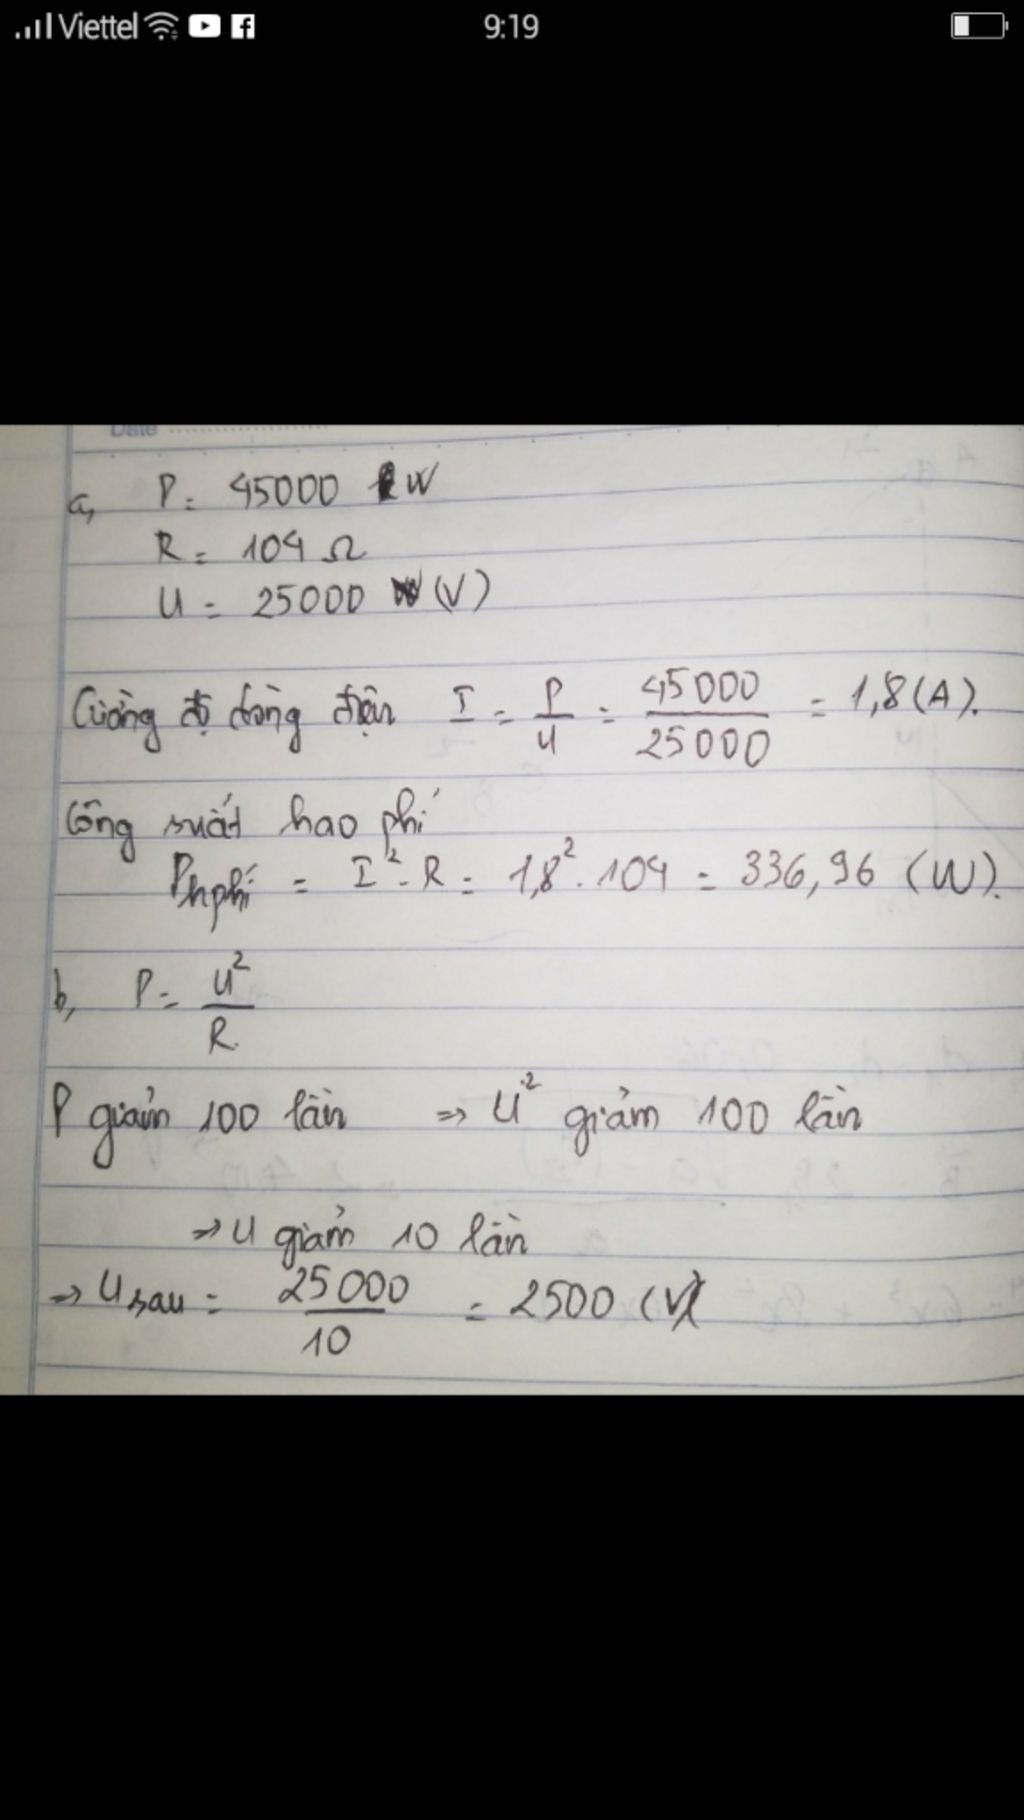 Viettel 9:19
Date
a, P = 45000 W
R = 104 Ω
U = 25000 (V)
Cường độ dòng điện I = P/U = 45000/25000 = 1,8 (A).
Công suất hao phí
Phphí = I² . R = 1,8² . 104 = 336,96 (W).
b, P = U²/R
P giảm 100 lần => U² giảm 100 lần
=> U giảm 10 lần
=> U sau = 25000/10 = 2500 (V)